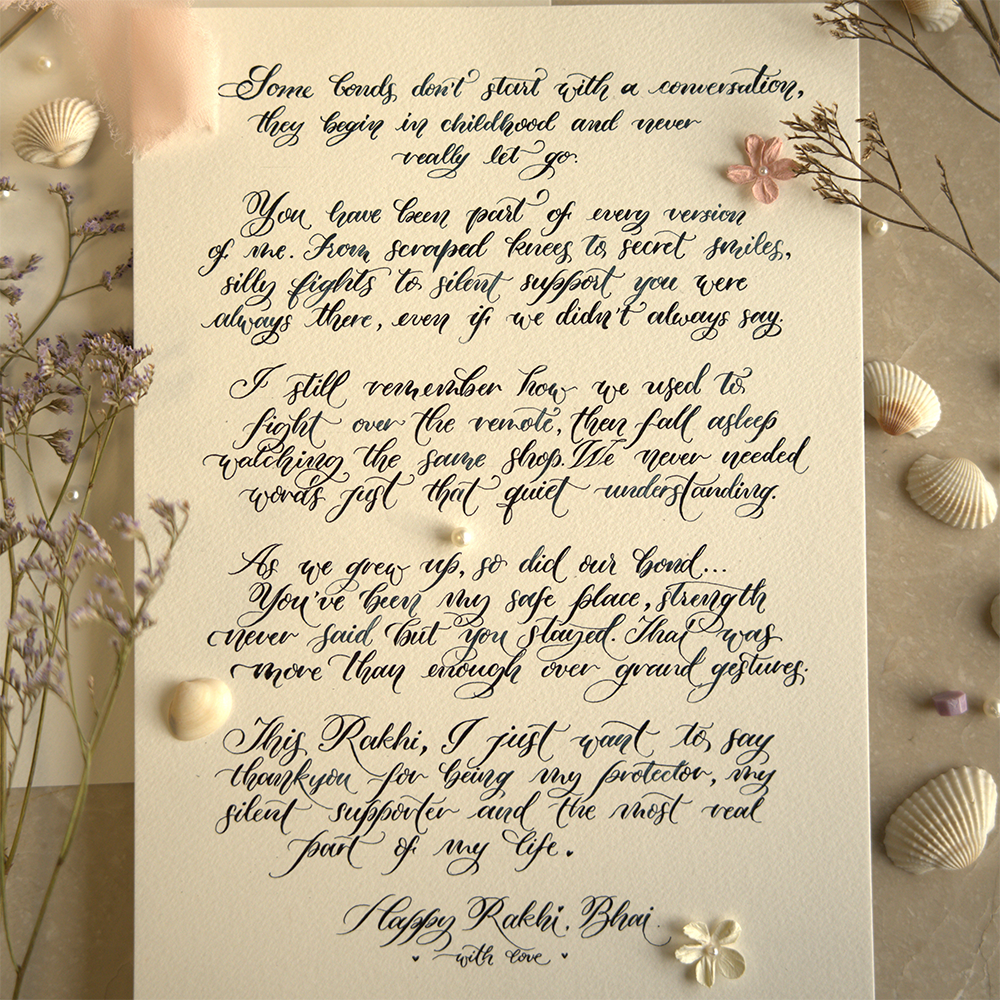 Some bonds don't start with a conversation,
they begin in childhood and never
really let go.
You have been part of every version
of me. From scraped knees to secret smiles,
silly fights to silent support you were
always there, even if we didn't always say.
I still remember how we used to
fight over the remote, then fall asleep
watching the same shop. We never needed
words just that quiet understanding.
As we grew up, so did our bond...
You've been my safe place, strength
never said but you stayed. That was
more than enough over grand gestures.
This Rakhi, I just want to say
thankyou for being my protector, my
silent supporter and the most real
part of my life.
Happy Rakhi, Bhai.
with love